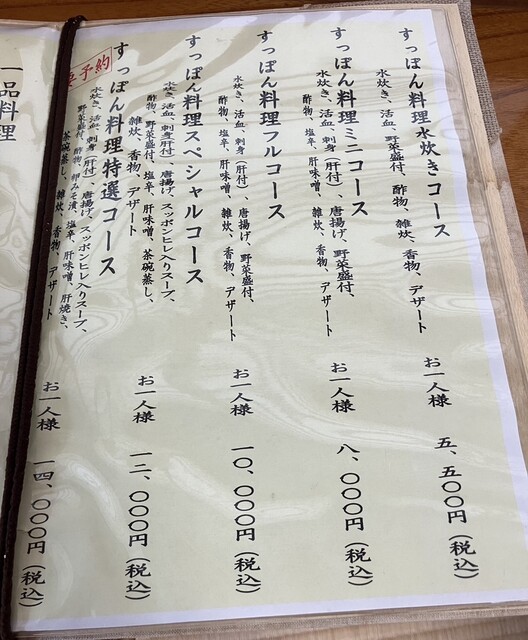 すっぽん料理水炊きコース
水炊き、活血、野菜盛付、酢物、雑炊、香物、デザート
お一人様 五、五〇〇円(税込)
すっぽん料理ミニコース
水炊き、活血、刺身(肝付)、唐揚げ、野菜盛付、
酢物、塩辛、肝味噌、雑炊、香物、デザート
お一人様 八、〇〇〇円(税込)
すっぽん料理フルコース
水炊き、活血、刺身(肝付)、唐揚げ、野菜盛付、
酢物、塩辛、肝味噌、雑炊、香物、デザート
お一人様 一〇、〇〇〇円(税込)
すっぽん料理スペシャルコース
水炊き、活血、刺身(肝付)、唐揚げ、スッポンヒレ入りスープ、
酢物、野菜盛付、塩辛、肝味噌、茶碗蒸し、
雑炊、香物、デザート
お一人様 一二、〇〇〇円(税込)
要予約
すっぽん料理特選コース
水炊き、活血、刺身(肝付)、唐揚げ、スッポンヒレ入りスープ、
野菜盛付、酢物、卵みそ漬、塩辛、肝味噌、肝焼き、
茶碗蒸し、雑炊、香物、デザート
お一人様 一四、〇〇〇円(税込)
一品料理